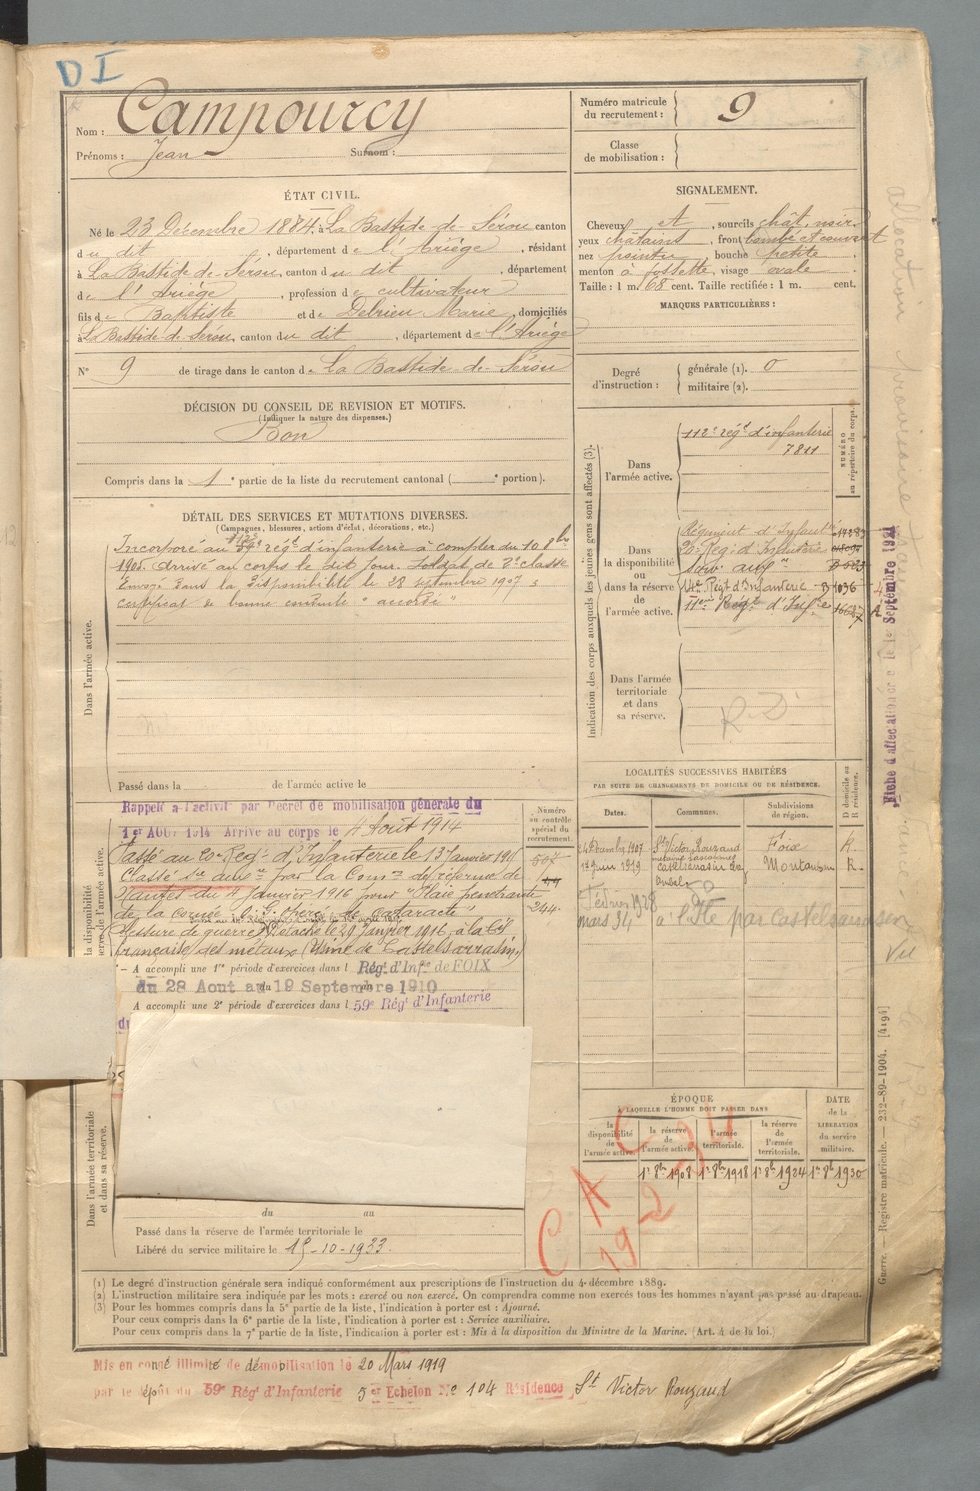 D I
Nom : Campourcy
Prénoms : Jean Surnom :
Numéro matricule du recrutement : 9
Classe de mobilisation :
ÉTAT CIVIL.
Né le 23 Décembre 1884, à La Bastide-de-Sérou canton
du dit, département de l'Ariège, résidant
à La Bastide de Sérou, canton du dit, département
de l'Ariège, profession de cultivateur
fils de Baptiste et de Delrieu Marie, domiciliés
à La Bastide de Sérou, canton du dit, département de l'Ariège
N° 9 de tirage dans le canton de La Bastide-de-Sérou
SIGNALEMENT.
Cheveux et, sourcils chât. noir
yeux châtains, front bombé et couvert
nez pointu, bouche petite,
menton à fossette, visage ovale
Taille : 1 m. 68 cent. Taille rectifiée : 1 m. cent.
MARQUES PARTICULIÈRES :
Degré d'instruction : générale (1). 0
militaire (2).
DÉCISION DU CONSEIL DE REVISION ET MOTIFS.
(Indiquer la nature des dispenses.)
Bon
Compris dans la 1e partie de la liste du recrutement cantonal ( e portion).
DÉTAIL DES SERVICES ET MUTATIONS DIVERSES.
(Campagnes, blessures, actions d'éclat, décorations, etc.)
Dans l'armée active.
Incorporé au 112e régt d'infanterie à compter du 10 8bre
1905. Arrivé au corps le dit jour. Soldat de 2e classe
Envoyé dans la disponibilité le 28 septembre 1907
certificat de bonne conduite "accordé"
Passé dans la de l'armée active le
Indication des corps auxquels les jeunes gens sont affectés (3).
NUMÉRO au répertoire du corps.
Dans l'armée active.
112e régt d'infanterie
7811
Dans la disponibilité ou dans la réserve de l'armée active.
Régiment d'Infant
20e Rég. d'Infanterie
Serv. auxre
14e Régt d'Infanterie B 1036
11e Régt d'Infie
Dans l'armée territoriale et dans sa réserve.
R.D
Fiche d'affectation le Septembre 1921
LOCALITÉS SUCCESSIVES HABITÉES
PAR SUITE DE CHANGEMENTS DE DOMICILE OU DE RÉSIDENCE.
Dates. Communes. Subdivisions de région. D domicile au R résidence.
Décembre 1907 St Victor Rouzaud Foix R.
17 juin 1919 Castelsarrasin Montauban R.
Février 1928
mars 34 à l' par Castelsarrasin
Vu
Numéro au contrôle spécial du recrutement.
244
Rappelé à l'activité par Décret de mobilisation générale du
1er AOUT 1914 Arrivé au corps le 4 Août 1914
Passé au 20e Régt d'Infanterie le 13 Janvier
Classé Sce auxre par la Comon de réforme de
Nantes du 4 Janvier 1916 pour "Plaie pénétrante
de la cornée
Blessure de guerre Détaché le 29 Janvier 1916 à la Cie
française des métaux (Usine de Castelsarrasin)
A accompli une 1re période d'exercices dans l Régt d'Infie de FOIX
du 28 Aout au 19 Septembre 1910
A accompli une 2e période d'exercices dans l 59e Régt d'Infanterie
Dans l'armée territoriale et dans sa réserve.
du au
Passé dans la réserve de l'armée territoriale le
Libéré du service militaire le 15-10-1933.
ÉPOQUE
À LAQUELLE L'HOMME DOIT PASSER DANS
la disponibilité de l'armée active.
la réserve de l'armée active.
l'armée territoriale.
la réserve de l'armée territoriale.
DATE de la LIBÉRATION du service militaire.
1er 8bre 1908 1er 8bre 1918 1er 8bre 1924 1er 8bre 1930
C A
(1) Le degré d'instruction générale sera indiqué conformément aux prescriptions de l'instruction du 4 décembre 1889.
(2) L'instruction militaire sera indiquée par les mots : exercé ou non exercé. On comprendra comme non exercés tous les hommes n'ayant pas passé au drapeau.
(3) Pour les hommes compris dans la 5e partie de la liste, l'indication à porter est : Ajourné.
Pour ceux compris dans la 6e partie de la liste, l'indication à porter est : Service auxiliaire.
Pour ceux compris dans la 7e partie de la liste, l'indication à porter est : Mis à la disposition du Ministre de la Marine. (Art. 4 de la loi.)
Guerre. — Registre matricule. — 232-89-1904. [4194]
Mis en congé illimité de démobilisation le 20 Mars 1919
par le dépôt du 59e Régt d'Infanterie 5er Echelon No 104 Résidence St Victor Rouzaud